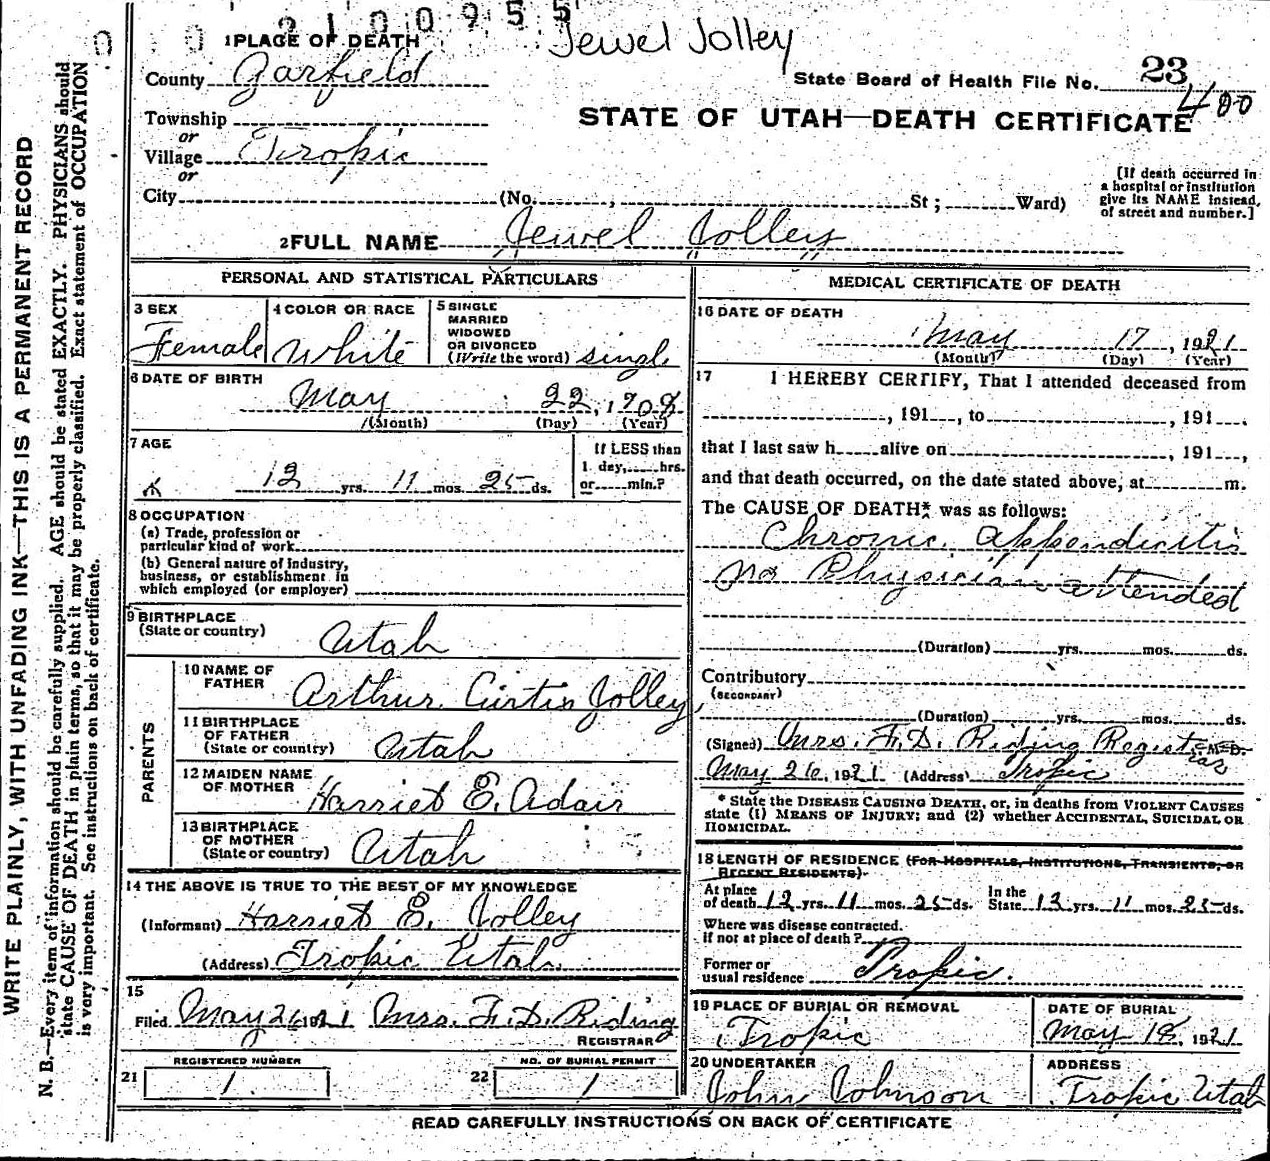 0 0 2 1 0 0 9 5 5
Jewel Jolley
1 PLACE OF DEATH
County Garfield
State Board of Health File No. 23
400
Township
or
Village Tropic
or
City (No. , St ; Ward)
STATE OF UTAH—DEATH CERTIFICATE
[If death occurred in
a hospital or institution
give its NAME instead,
of street and number.]
2 FULL NAME Jewel Jolley
PERSONAL AND STATISTICAL PARTICULARS
3 SEX
Female
4 COLOR OR RACE
White
5 SINGLE
MARRIED
WIDOWED
OR DIVORCED
(Write the word) single
6 DATE OF BIRTH
May 22, 1908
(Month) (Day) (Year)
7 AGE
12 yrs. 11 mos. 25 ds.
If LESS than
1 day, hrs.
or min.?
8 OCCUPATION
(a) Trade, profession or
particular kind of work
(b) General nature of industry,
business, or establishment in
which employed (or employer)
9 BIRTHPLACE
(State or country) Utah
PARENTS
10 NAME OF
FATHER Arthur Curtis Jolley
11 BIRTHPLACE
OF FATHER
(State or country) Utah
12 MAIDEN NAME
OF MOTHER Harriet E. Adair
13 BIRTHPLACE
OF MOTHER
(State or country) Utah
14 THE ABOVE IS TRUE TO THE BEST OF MY KNOWLEDGE
(Informant) Harriet E. Jolley
(Address) Tropic Utah.
15
Filed May 26 1921 Mrs. F. D. Riding
REGISTRAR
REGISTERED NUMBER
21 1
NO. OF BURIAL PERMIT
22 1
MEDICAL CERTIFICATE OF DEATH
16 DATE OF DEATH
May 17, 1921
(Month) (Day) (Year)
17 I HEREBY CERTIFY, That I attended deceased from
, 191 , to , 191 .
that I last saw h alive on , 191 ,
and that death occurred, on the date stated above, at m.
The CAUSE OF DEATH* was as follows:
Chronic. appendicitis
no Physician attended
(Duration) yrs. mos. ds.
Contributory
(SECONDARY)
(Duration) yrs. mos. ds.
(Signed) Mrs. F. D. Riding Registrar M.D.
May 26, 1921 (Address) Tropic
* State the DISEASE CAUSING DEATH, or, in deaths from VIOLENT CAUSES
state (1) MEANS OF INJURY; and (2) whether ACCIDENTAL, SUICIDAL OR
HOMICIDAL.
18 LENGTH OF RESIDENCE (FOR HOSPITALS, INSTITUTIONS, TRANSIENTS, OR
RECENT RESIDENTS)
At place
of death 12 yrs. 11 mos. 25 ds. In the
State 12 yrs. 11 mos. 25 ds.
Where was disease contracted.
if not at place of death?
Former or
usual residence Tropic.
19 PLACE OF BURIAL OR REMOVAL
Tropic
DATE OF BURIAL
May 18, 1921
20 UNDERTAKER
John Johnson
ADDRESS
Tropic Utah
READ CAREFULLY INSTRUCTIONS ON BACK OF CERTIFICATE
WRITE PLAINLY, WITH UNFADING INK—THIS IS A PERMANENT RECORD
N. B.—Every item of information should be carefully supplied. AGE should be stated EXACTLY. PHYSICIANS should
state CAUSE OF DEATH in plain terms, so that it may be properly classified. Exact statement of OCCUPATION
is very important. See instructions on back of certificate.